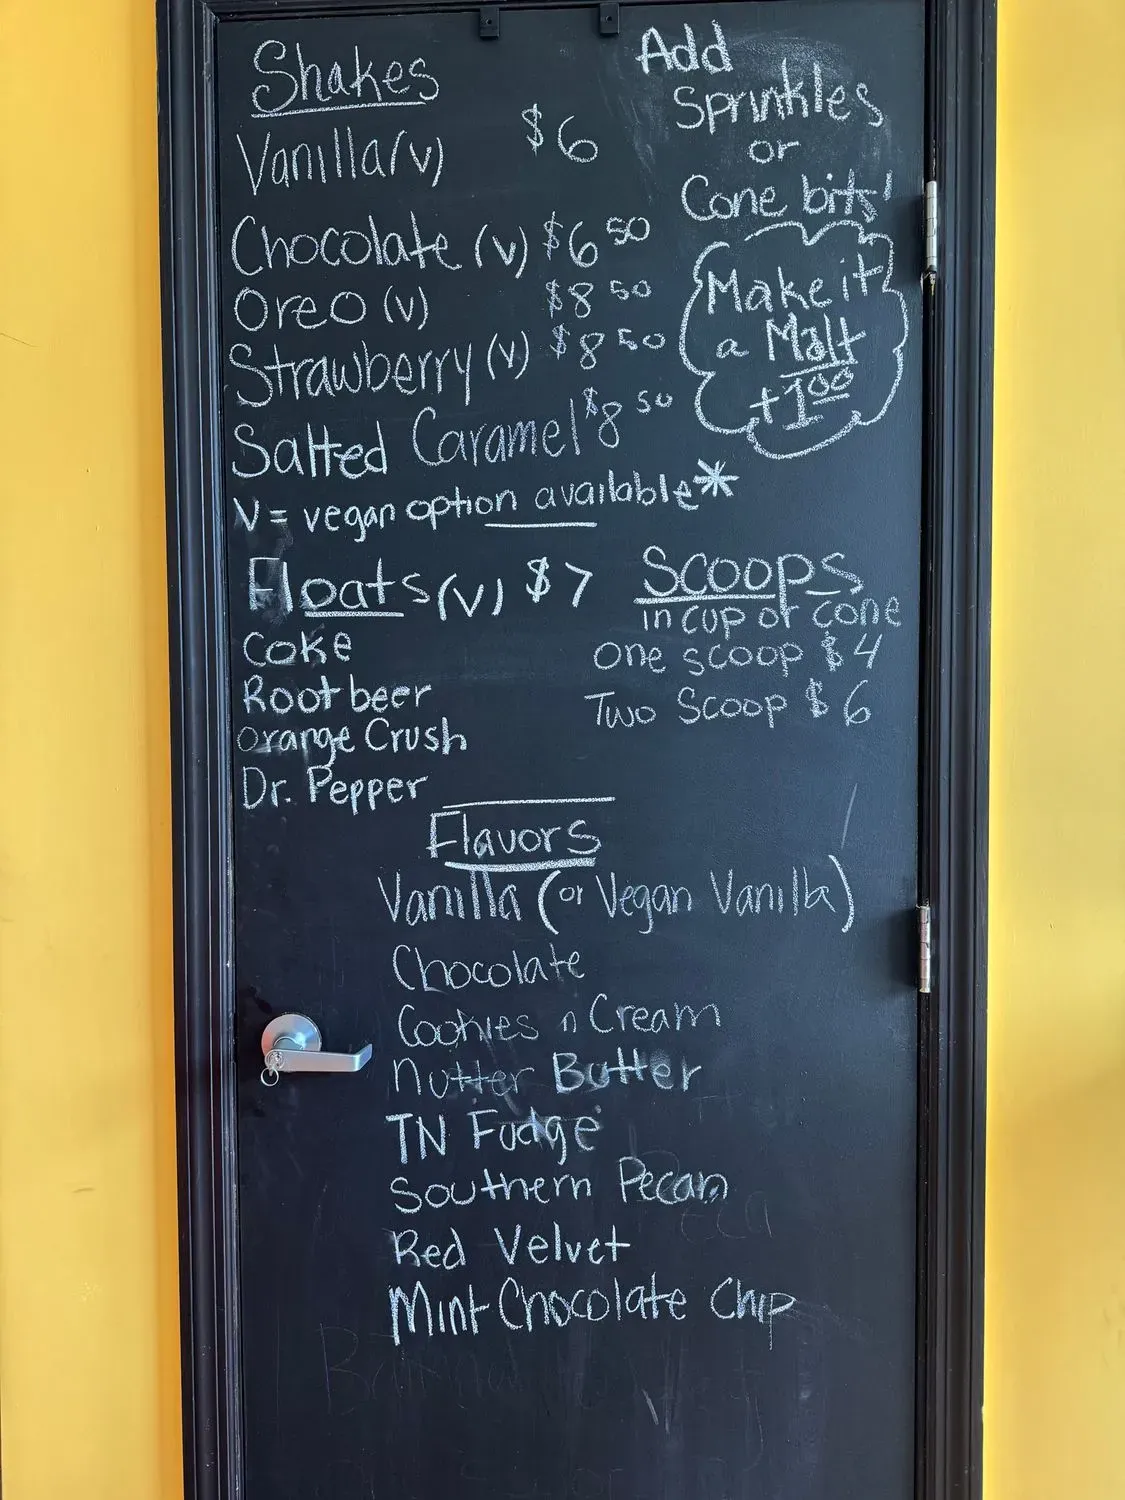 Shakes
Vanilla (v) $6
Chocolate (v) $6 50
Oreo (v) $8 50
Strawberry (v) $8 50
Salted Caramel $8 50
V = vegan option available*
Add
Sprinkles
or
Cone bits!
Make it
a Malt
+1 00
Floats (v) $7
Coke
Root beer
Orange Crush
Dr. Pepper
Scoops
in cup or cone
one scoop $4
Two Scoop $6
Flavors
Vanilla (or Vegan Vanilla)
Chocolate
Cookies n Cream
Nutter Butter
TN Fudge
Southern Pecan
Red Velvet
Mint Chocolate Chip